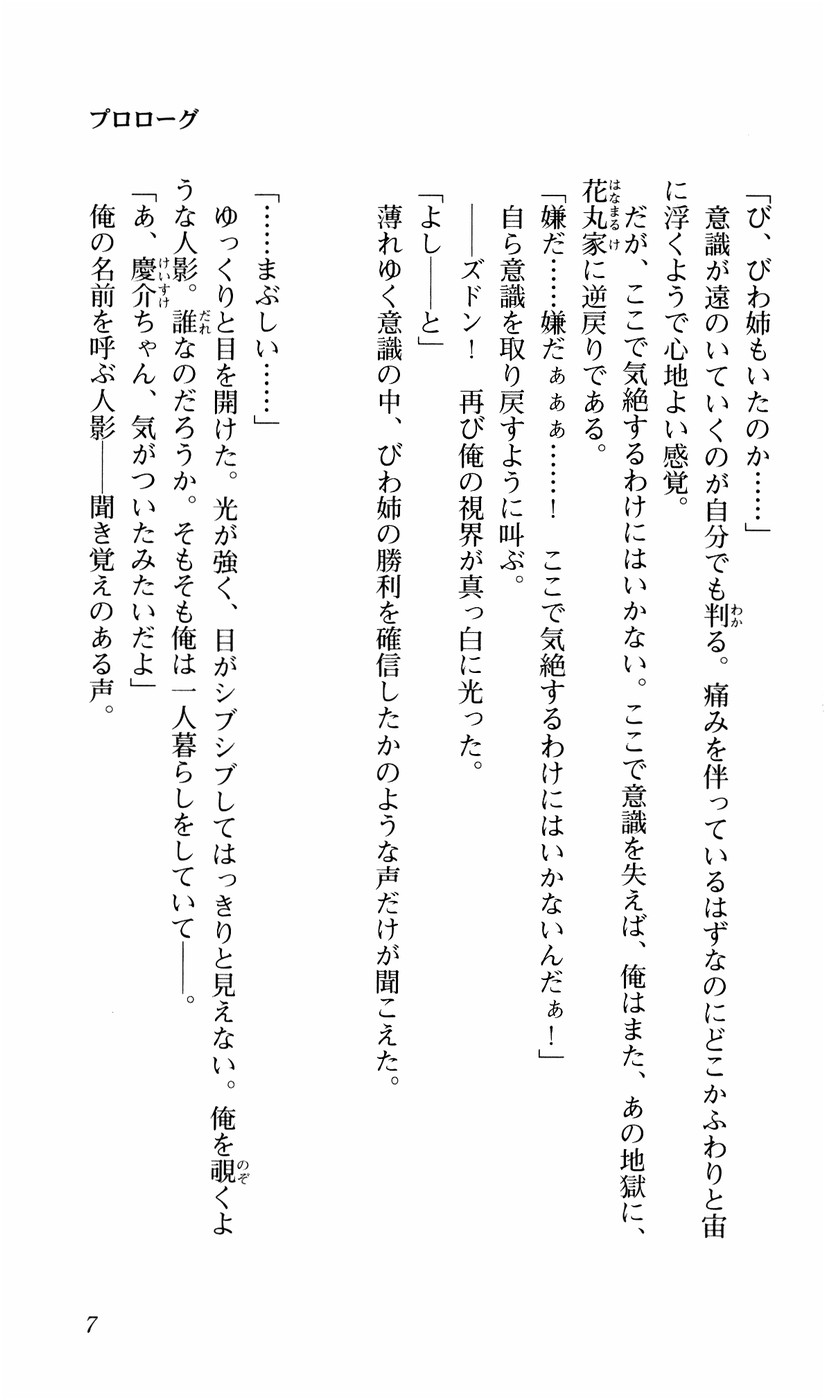 プロローグ
「び、びわ姉もいたのか……」
意識が遠のいていくのが自分でも判る。痛みを伴っているはずなのにどこかふわりと宙
に浮くようで心地よい感覚。
だが、ここで気絶するわけにはいかない。ここで意識を失えば、俺はまた、あの地獄に、
花丸家に逆戻りである。
「嫌だ……嫌だぁぁぁ……！　ここで気絶するわけにはいかないんだぁ！」
自ら意識を取り戻すように叫ぶ。
――ズドン！　再び俺の視界が真っ白に光った。
「よし――と」
薄れゆく意識の中、びわ姉の勝利を確信したかのような声だけが聞こえた。
「……まぶしい……」
ゆっくりと目を開けた。光が強く、目がシブシブしてはっきりと見えない。俺を覗くよ
うな人影。誰なのだろうか。そもそも俺は一人暮らしをしていて――。
「あ、慶介ちゃん、気がついたみたいだよ」
俺の名前を呼ぶ人影――聞き覚えのある声。
7